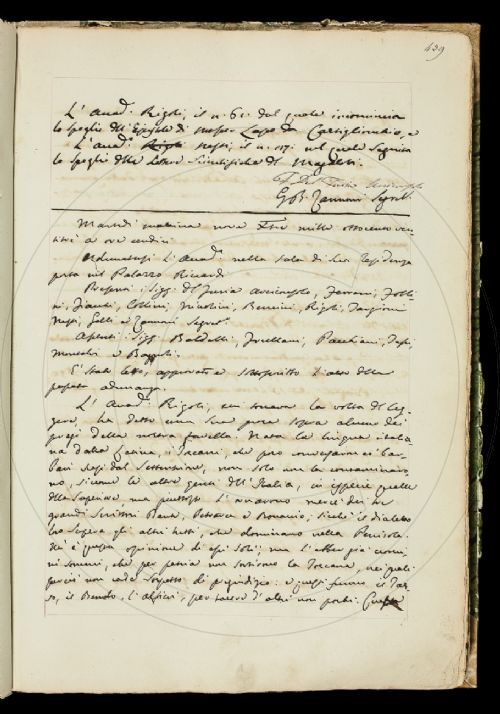 439
L'Accad. Rigoli, il n. 61. dal quale incomincia
lo spoglio dell'Epistole di Mess. Lapo da Castiglionchio, e
L'Accad. Nesti, il n. 117. nel quale seguita
lo spoglio delle Lettere Scientifiche del Magalotti.
G. B. Zannoni Segret.
Martedì mattina nove mille ottocento ven
titrè a ore undici
Adunatasi l'Accad. nella sala di sua residenza
posta nel Palazzo Riccardi
Presenti i Sigg. del Furia Arciconsolo, Ferroni, Folli
ni, Fiacchi, Collini, Niccolini, Bencini, Rigoli, Targioni
Nesti, Gelli e Zannoni Segret.
Assenti i Sigg. Baldelli, Frullani, Pacchiani,
e
È stato letto, approvato e sottoscritto l'atto della
passata adunanza.
L'Accad. Rigoli, cui toccava la volta di leg-
gere, ha detto una sua prosa sopra alcuni dei
pregi della nostra favella. Nata la lingua italia
na dalla latina, i Toscani, che pur conversarono coi bar-
bari scesi dal Settentrione, non solo non la contaminaro-
no, siccome le altre genti dell'Italia, in ispecie quelle
della Superiore ma piuttosto l'ornarono mercè dei tre
grandi Scrittori Dante, Petrarca e Boccaccio; sicchè il dialetto
loro supera gli altri tutti, che dominano nella Penisola.
Nè è questa opinione di essi soli; ma l'ebber più uomi
ni sommi, che per patria non sortirono la Toscana, nei quali
perciò non cade sospetto di pregiudizio: e questi furono il Tas-
so, il Bembo, l'Alfieri, per tacere d'altri non pochi. Questa